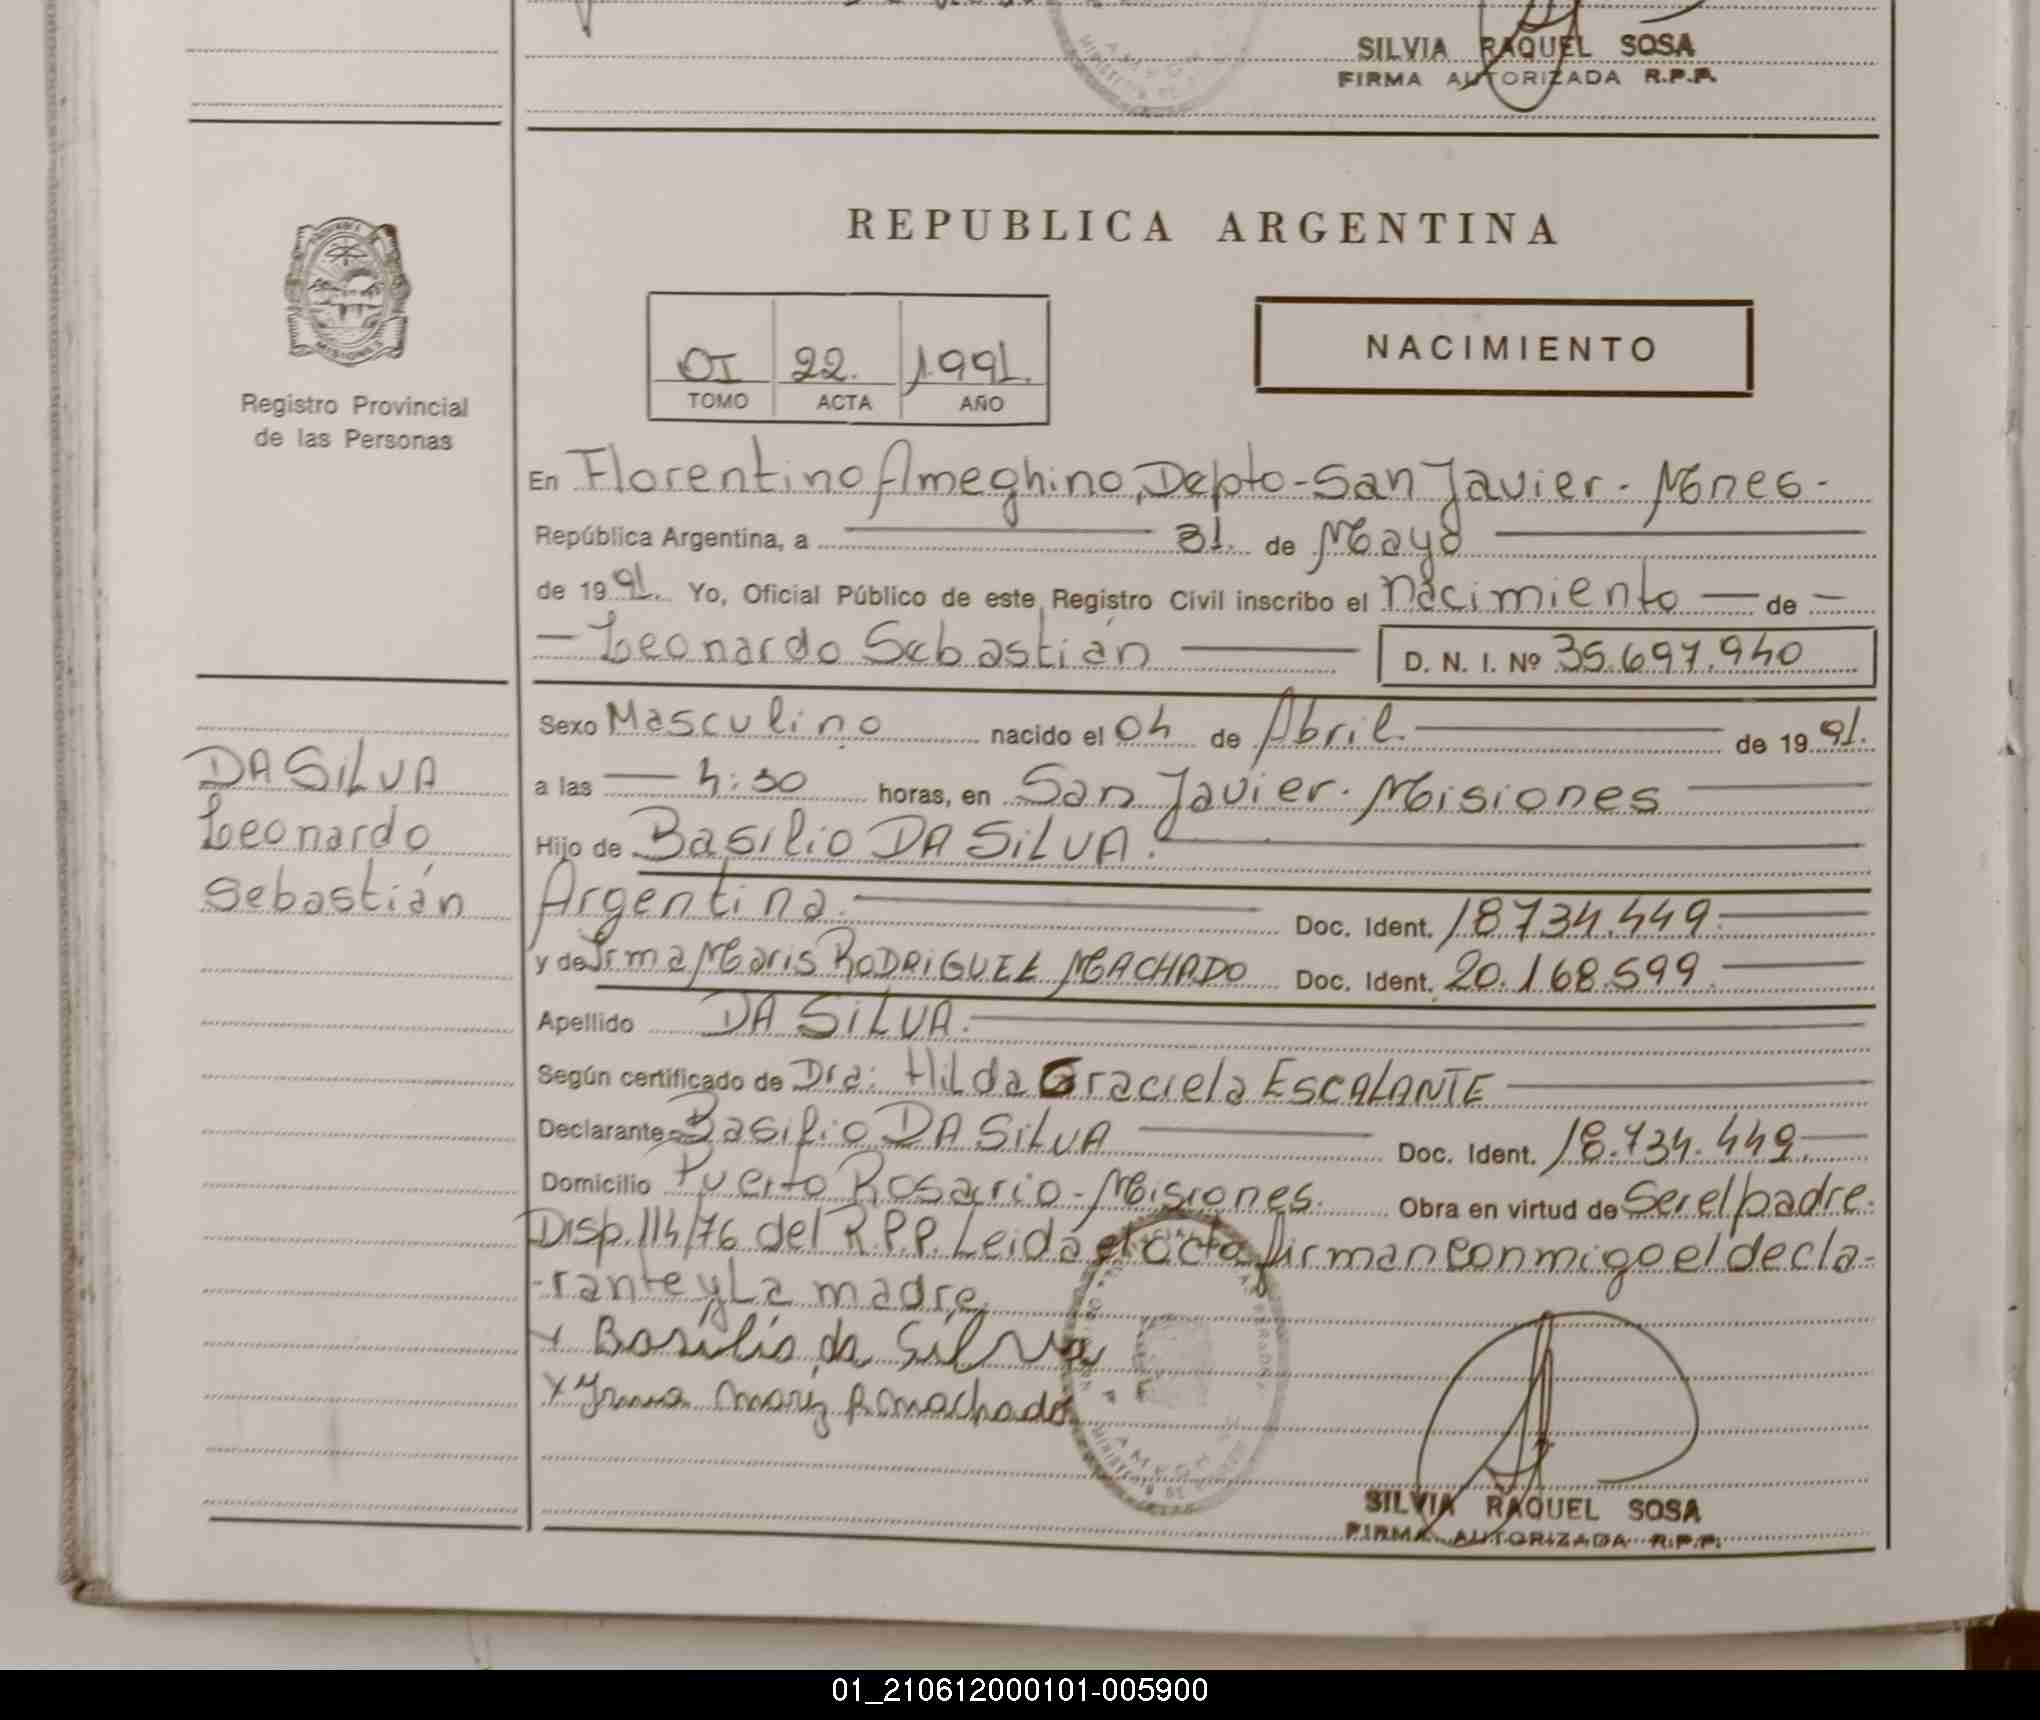 SILVIA RAQUEL SOSA
FIRMA AUTORIZADA R.P.P.
REPUBLICA ARGENTINA
OI 22. 1991.
TOMO ACTA AÑO
NACIMIENTO
MISIONES
Registro Provincial
de las Personas
En Florentino Ameghino, Depto-San Javier-Mnes-
República Argentina, a 31. de Mayo
de 1991. Yo, Oficial Público de este Registro Civil inscribo el nacimiento — de —
— Leonardo Sebastián — D. N. I. Nº 35.697.940
Sexo Masculino nacido el 04 de Abril. de 1991.
a las — 4:30 horas, en San Javier-Misiones
Hijo de Basilio DA SILVA.
Argentina. Doc. Ident. 18734.449.
y de Irma Maris RODRIGUEZ MACHADO Doc. Ident. 20.168.599.
Apellido DA SILVA.
Según certificado de Dra: Hilda Graciela ESCALANTE
Declarante Basilio DA SILVA — Doc. Ident. 18.734.449.
Domicilio Puerto Rosario-Misiones. Obra en virtud de Ser el padre.
Disp. 114/76 del R.P.P. Leida el acta firman conmigo el decla-
-rante y La madre.
x Basilio da Silva
x Yrma Mariz R Machado
DA SILVA
Leonardo
Sebastián
SILVIA RAQUEL SOSA
FIRMA AUTORIZADA R.P.P.
01_210612000101-005900